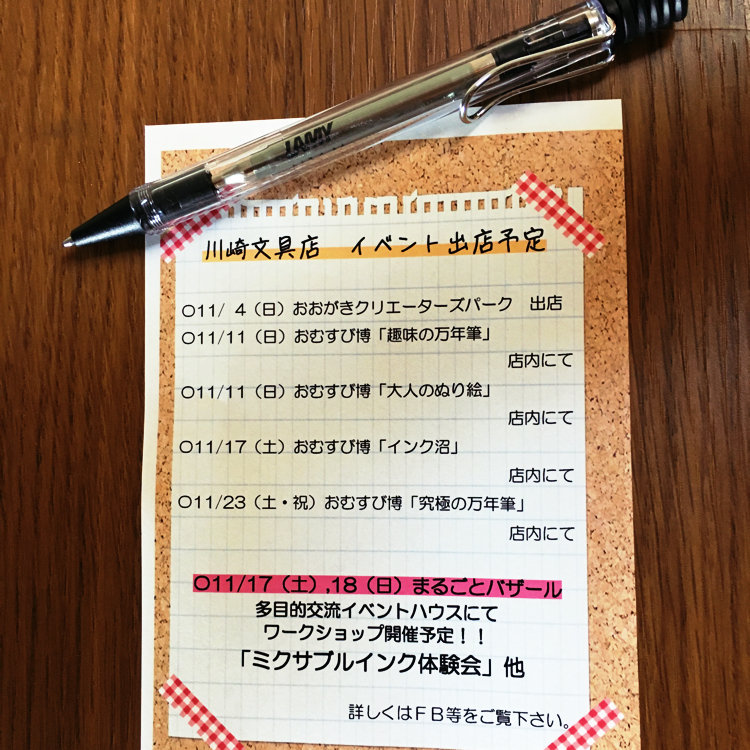 LAMY
川崎文具店 イベント出店予定
○11/ 4(日)おおがきクリエーターズパーク 出店
○11/11(日)おむすび博「趣味の万年筆」
店内にて
○11/11(日)おむすび博「大人のぬり絵」
店内にて
○11/17(土)おむすび博「インク沼」
店内にて
○11/23(土・祝)おむすび博「究極の万年筆」
店内にて
○11/17(土),18(日)まるごとバザール
多目的交流イベントハウスにて
ワークショップ開催予定!!
「ミクサブルインク体験会」他
詳しくはFB等をご覧下さい。